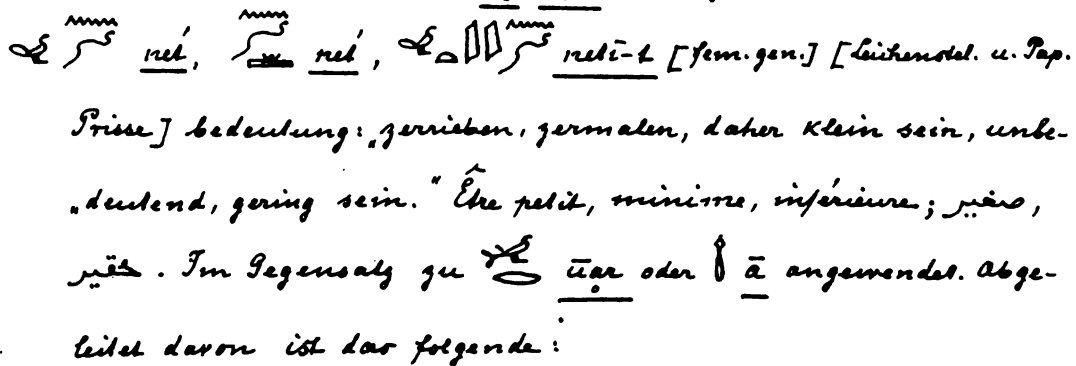 net́, net́, netī-t [fem. gen.] [Leichenstel. u. Pap.
Prisse] bedeutung: „zerrieben, zermalen, daher klein sein, unbe-
„deutend, gering sein." Être petit, minime, inférieure; صغير,
حقير. Im Gegensatz zu ūạr oder ā angewendet. Abge-
leitet davon ist das folgende: